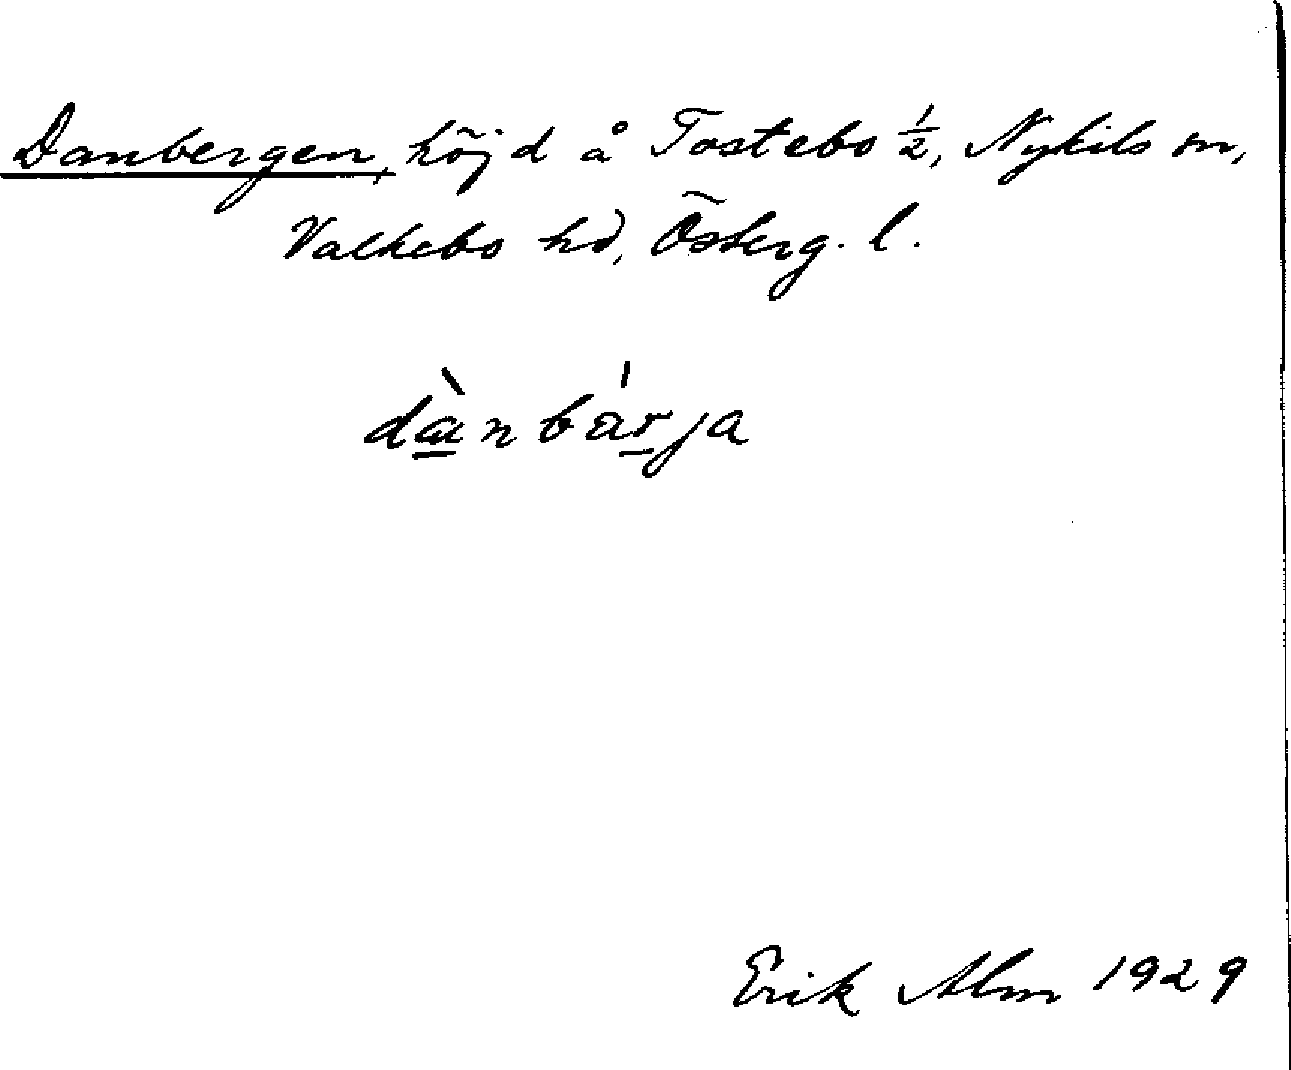 Danbergen, höjd å Tostebo ½, Nykils sn,
Valkebo hd, Österg. l.
dànbárja
Erik Alm 1929